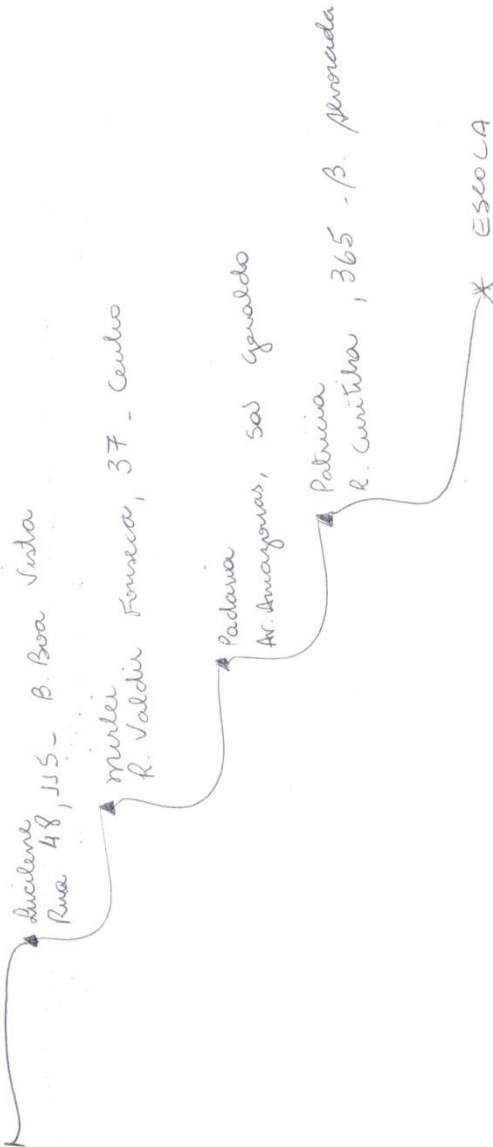 Lucilene
Rua 48, 115 - B. Boa Vista
Mirlei
R. Valdir Fonseca, 37 - Centro
Padaria
Av. Amazonas, São Geraldo
Patricia
R. Curitiba, 365 - B. Alvorada
ESCOLA